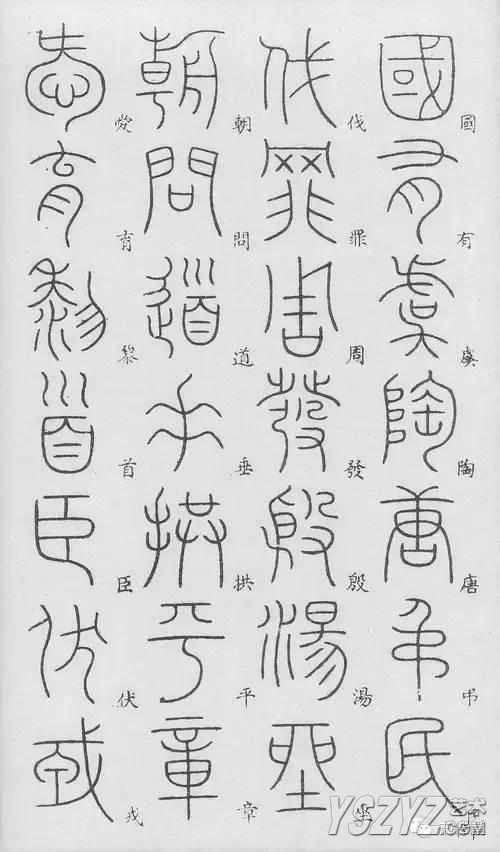 國有虞陶唐弔民
伐罪周發殷湯坐
朝問道垂拱平章
愛育黎首臣伏戎
YSZYZ
艺术
.COM